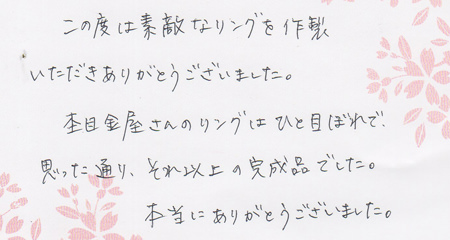 この度は素敵なリングを作製
いただきありがとうございました。
杢目金屋さんのリングはひと目ぼれで、
思った通り、それ以上の完成品でした。
本当にありがとうございました。